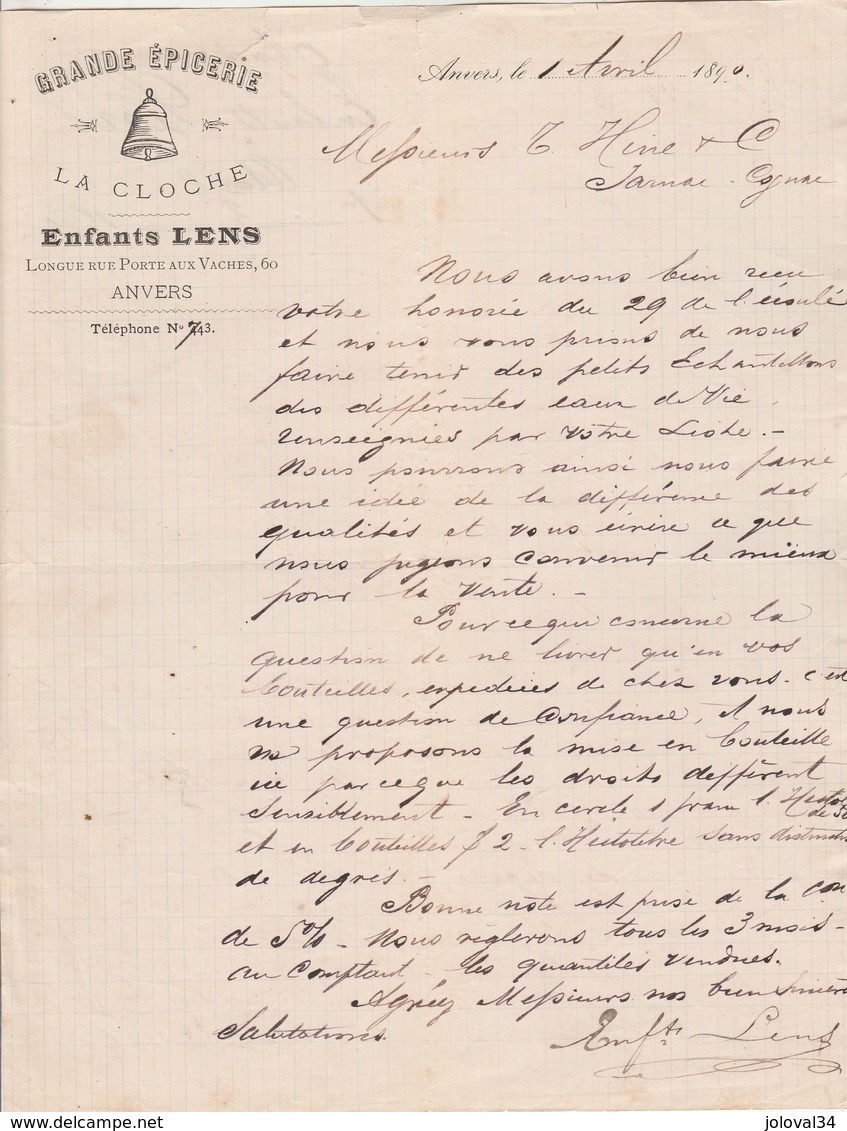 GRANDE ÉPICERIE
LA CLOCHE
Enfants LENS
LONGUE RUE PORTE AUX VACHES, 60
ANVERS
Téléphone No 743.
Anvers, le 1 Avril 1890.
Messieurs T. Hine & C
Jarnac - Cognac
Nous avons bien reçu
votre honorée du 29 de l'écoulé
et nous vous prions de nous
faire tenir des petits Echantillons
des différentes eaux de Vie,
renseignées par votre Liste.-
Nous pourrons ainsi nous faire,
une idée de la différence des
qualités et vous écrire ce que
nous jugeons convenir le mieux
pour la vente.-
Pour ce qui concerne la
question de ne livrer qu'en vos
bouteilles, expediées de chez vous. c'est
une question de Confiance, et nous
ns proposons la mise en bouteille
ici parceque les droits diffèrent
sensiblement - En cercle 1 franc l'Hectol
de
et en bouteilles f 2 - l'Hectolitre sans distinction
de degrés.-
Bonne note est prise de la con
de 5% - Nous règlerons tous les 3 mois -
au comptant - les quantités vendues.
Agréez Messieurs nos bien sincères
Salutations.
Enfts Lens
joloval34